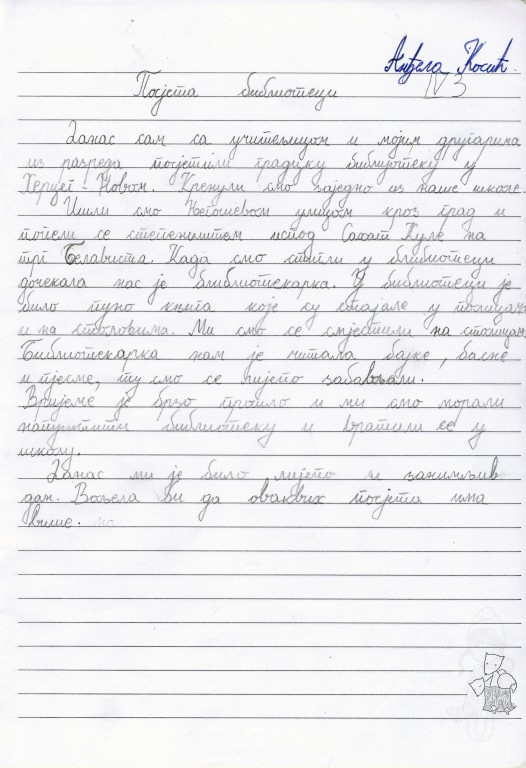 Анђела Косић
IV 3
Посјета библиотеци
Данас сам са учитељицом и мојим другарима
из разреда посјетили градску библиотеку у
Херцег-Новом. Кренули смо заједно из наше школе.
Ишли смо Његошевом улицом кроз град и
попели се степеништем испод Сахат Куле на
трг Белависта. Када смо стигли у библиотеци
дочекала нас је библиотекарка. У библиотеци је
било пуно књига које су стајале у полицама
и на столовима. Ми смо се смјестили на столицама.
Библиотекарка нам је читала бајке, басне
и пјесме, ту смо се лијепо забављали.
Вријеме је брзо прошло и ми смо морали
напустити библиотеку и вратили се у
школу.
Данас ми је било лијепо и занимљив
дан. Вољела би да оваквих посјета има
више.